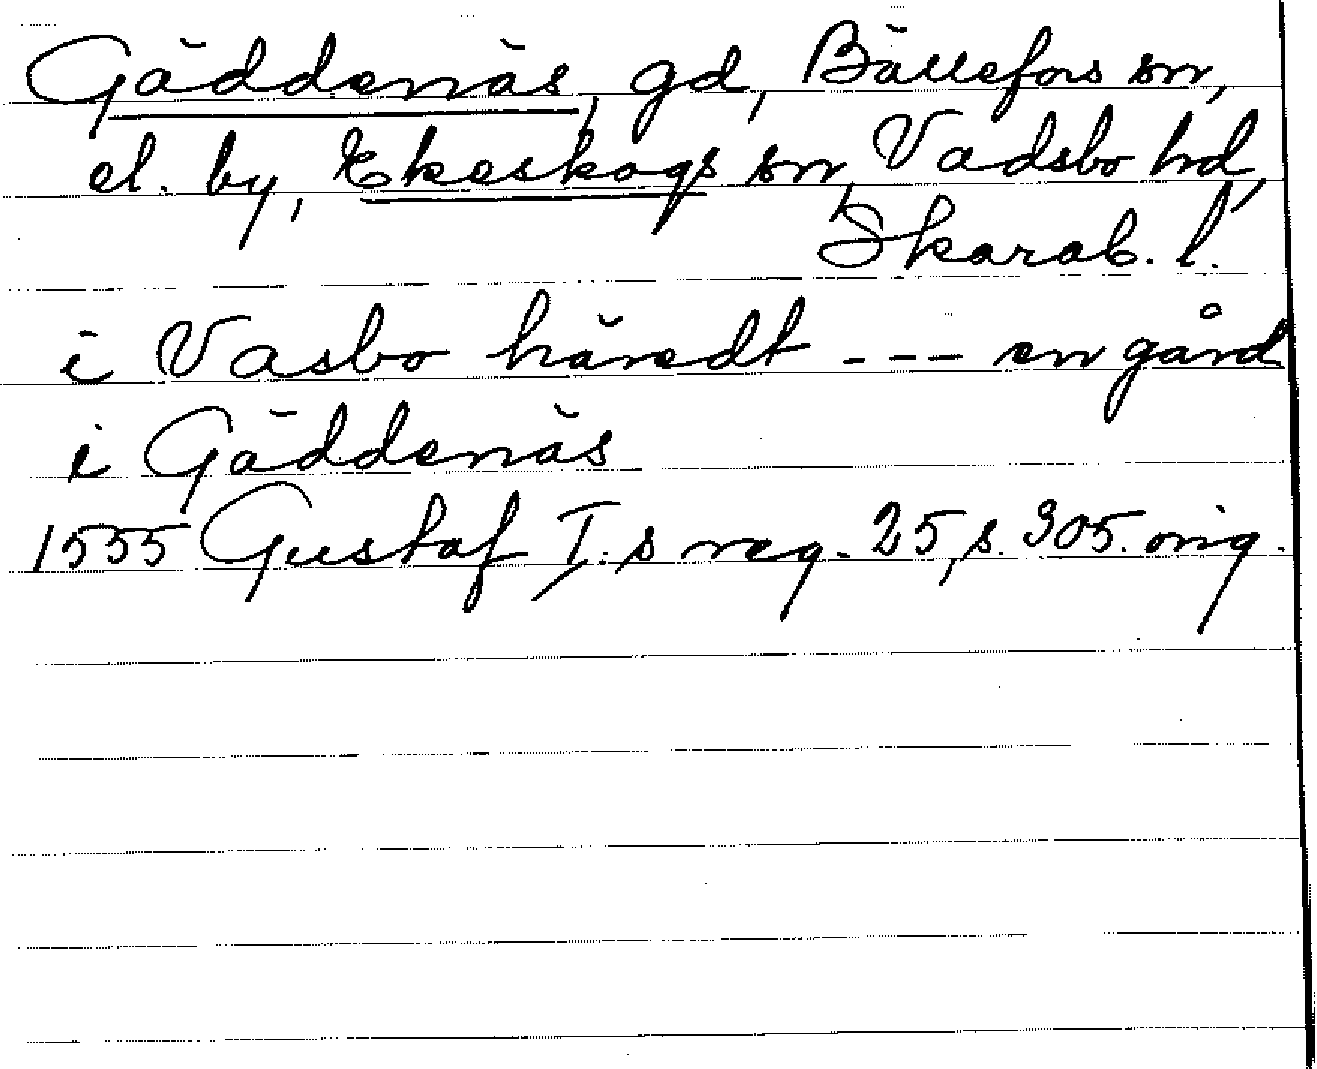 Gäddenäs, gd, Bällefors sn,
el. by, Ekeskogs sn, Vadsbo hd,
Skarab. l.
i Vasbo häredt --- en gård
i Gäddenäs
1555 Gustaf I:s reg. 25, s. 305. orig.